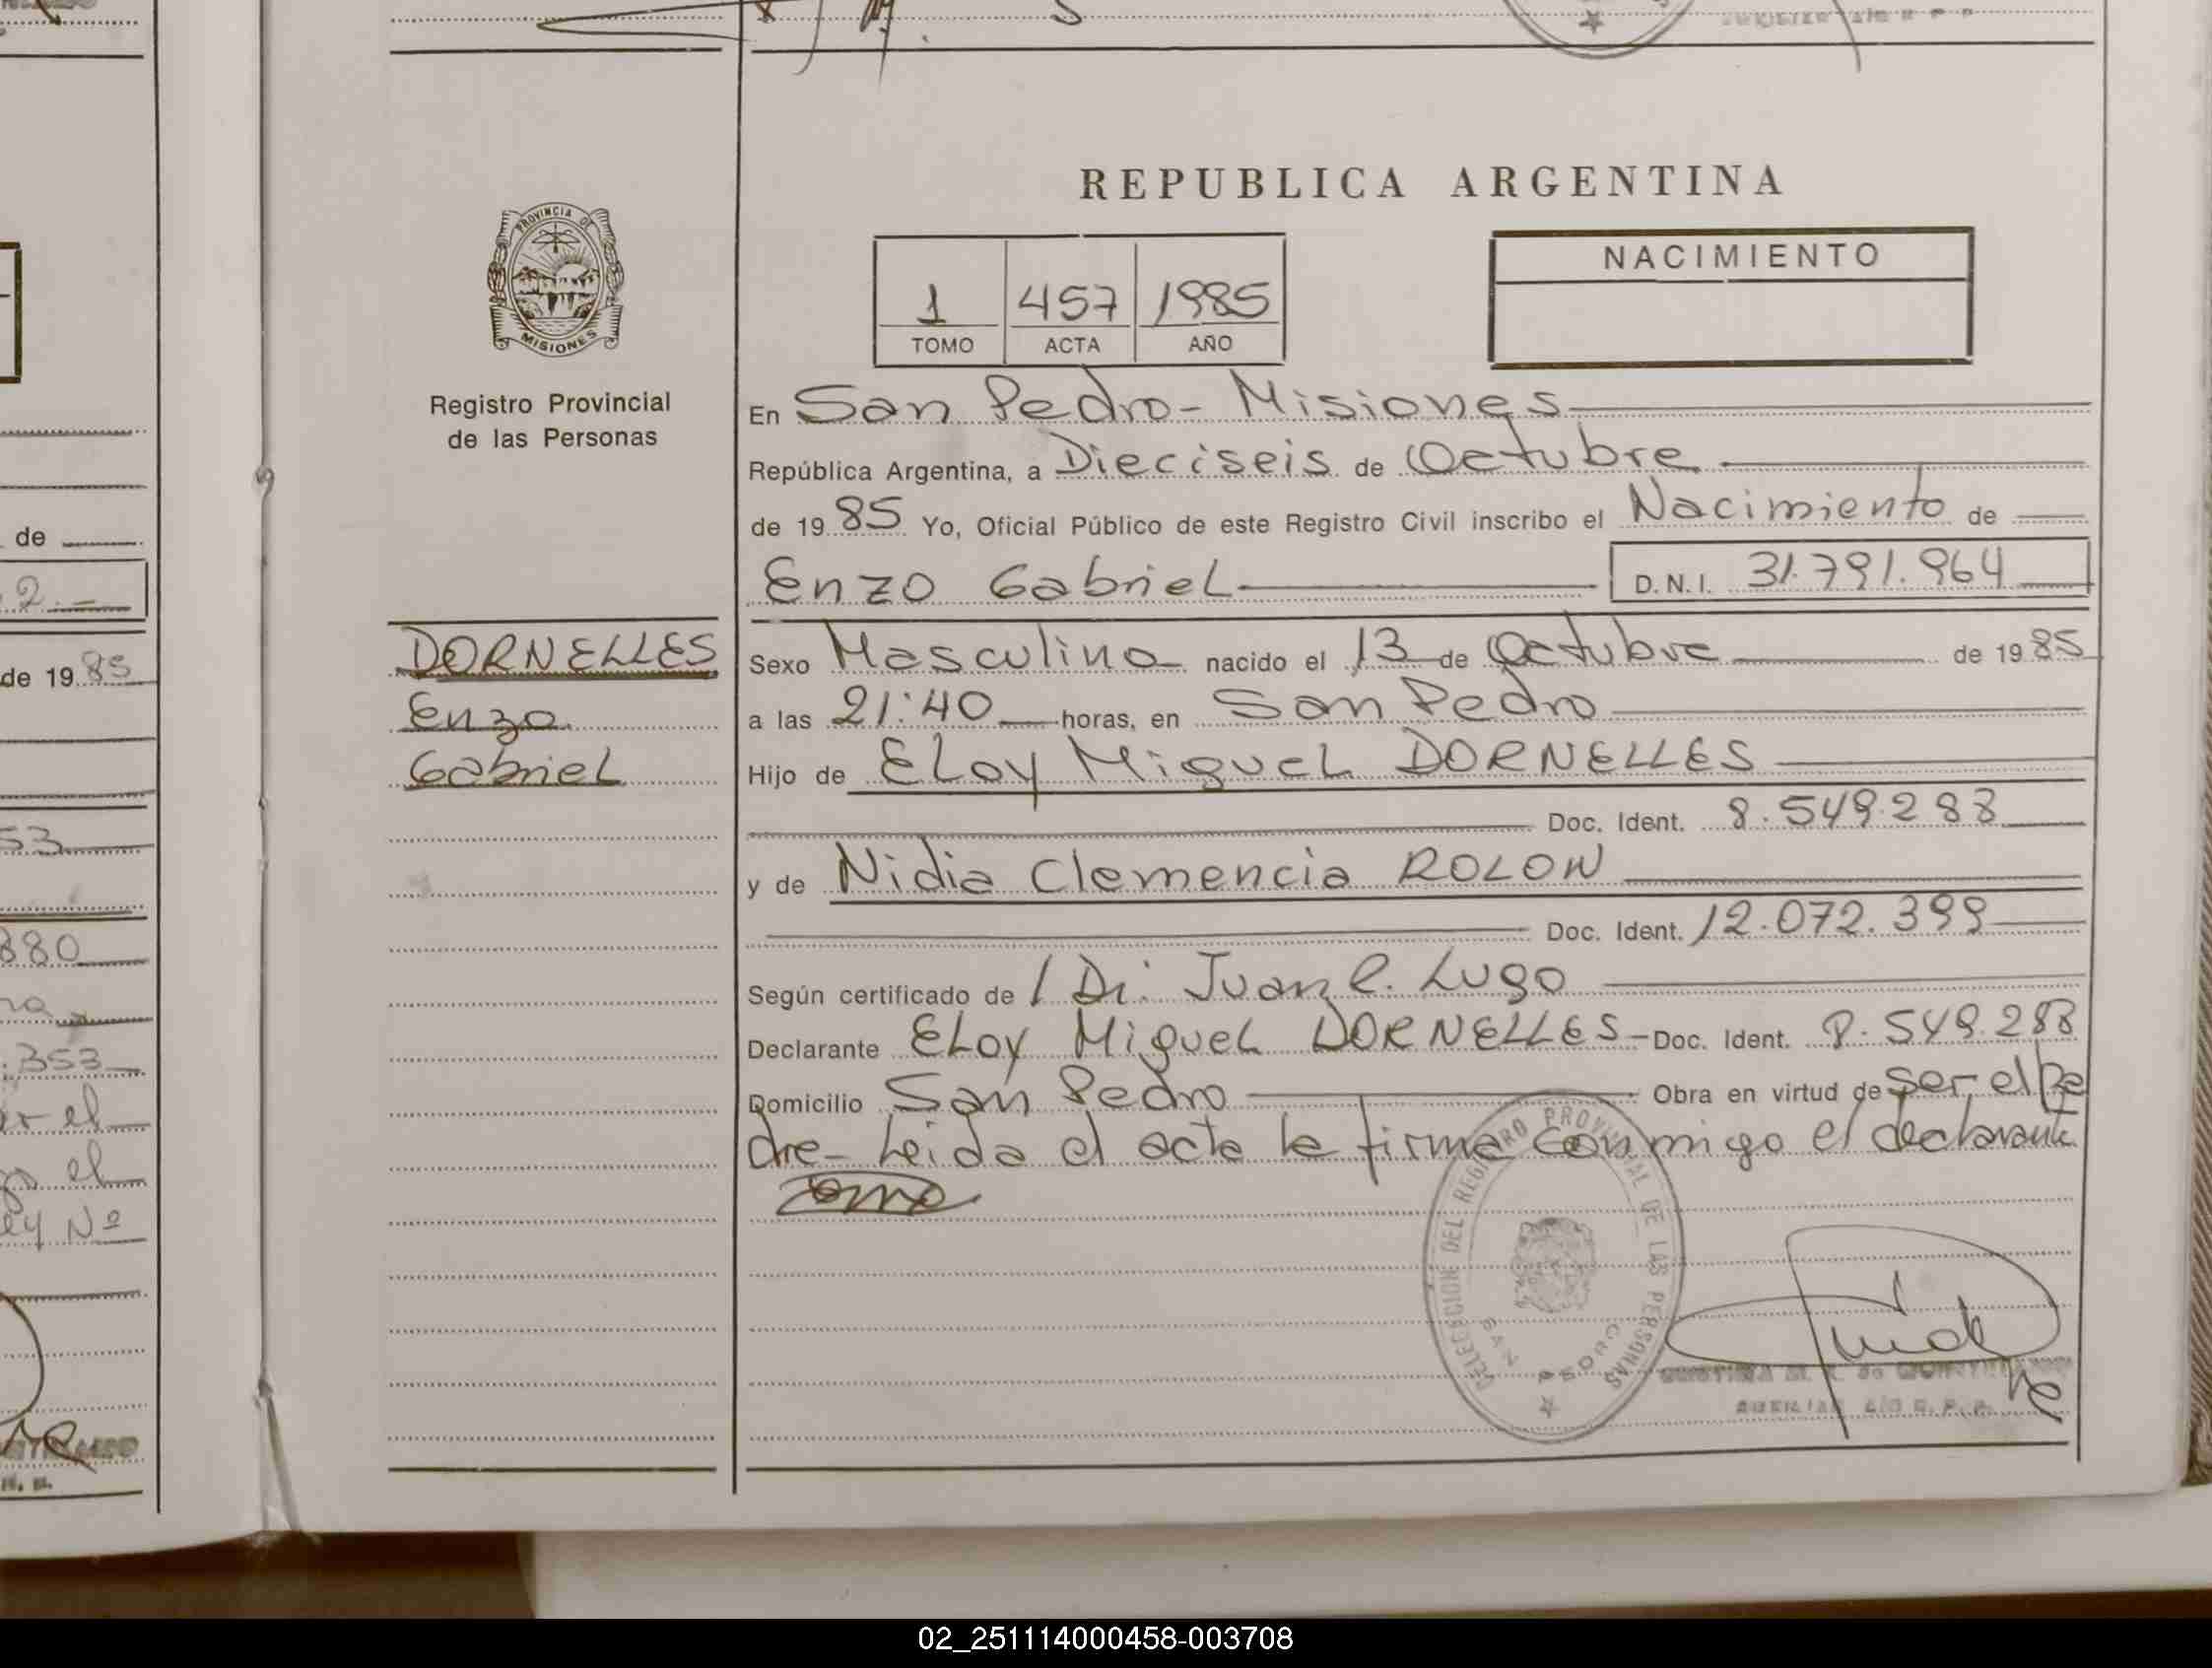 REPUBLICA ARGENTINA
PROVINCIA DE
MISIONES
Registro Provincial
de las Personas
1 457 1985
TOMO ACTA AÑO
NACIMIENTO
En San Pedro - Misiones
República Argentina, a Dieciseis de Octubre
de 1985 Yo, Oficial Público de este Registro Civil inscribo el Nacimiento de
Enzo Gabriel D.N.I. 31.791.964
DORNELLES
Enzo
Gabriel
Sexo Masculino nacido el 13 de Octubre de 1985
a las 21:40 horas, en San Pedro
Hijo de Eloy Miguel DORNELLES
Doc. Ident. 8.549.288
y de Nidia Clemencia ROLON
Doc. Ident. 12.072.399
Según certificado de Juan Lugo
Declarante Eloy Miguel DORNELLES - Doc. Ident. 8.549.288
Domicilio San Pedro Obra en virtud de ser el pa
dre - Leida el acta la firma conmigo el declarante
DELEGACION DEL REGISTRO PROVINCIAL DE LAS PERSONAS
SAN PEDRO
de
2.-
de 19 85
53
880
.353
er el
el
ey Nº
02_251114000458-003708